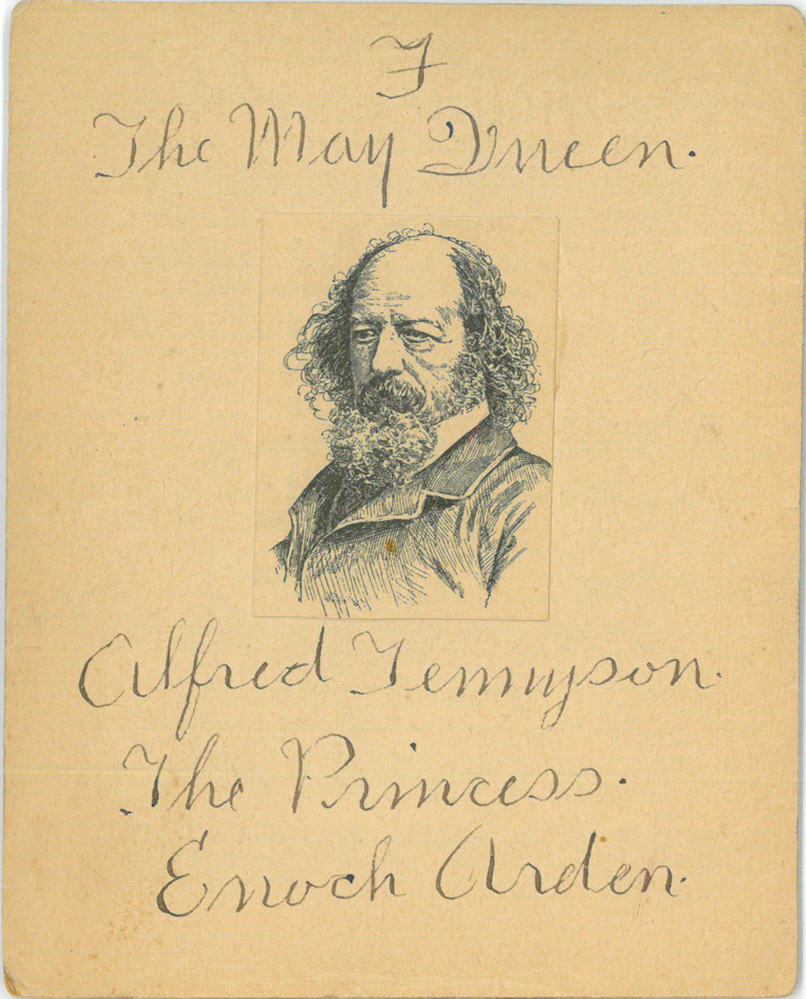 F
The May Queen.
Alfred Tennyson.
The Princess.
Enoch Arden.